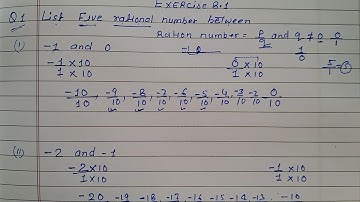 EXERCISE 8.1
Q1 List Five rational number between
Ration number = p/q and q ≠ 0 0/1
(i) -1 and 0
-1 × 10 / 1 × 10 0 × 10 / 1 × 10 1/0 5/1 = 5
-10/10, -9/10, -8/10, -7/10, -6/10, -5/10, -4/10, -3/10 -2/10 0/10
(ii) -2 and -1
-2 × 10 / 1 × 10 -1 × 10 / 1 × 10
-20 -19 -18 -17 -16 -15 -14 -13 -10